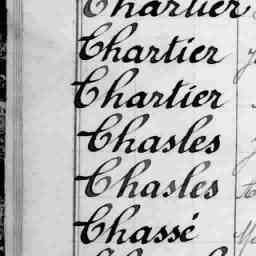 Chartier
Chartier
Chartier
Chasles
Chasles
Chassé